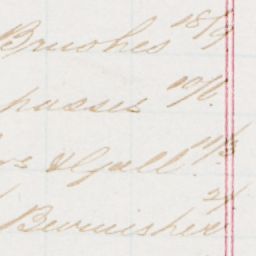 Brushes 18/9
passes 10/6
& Gall 11/3
Burnisher 2/